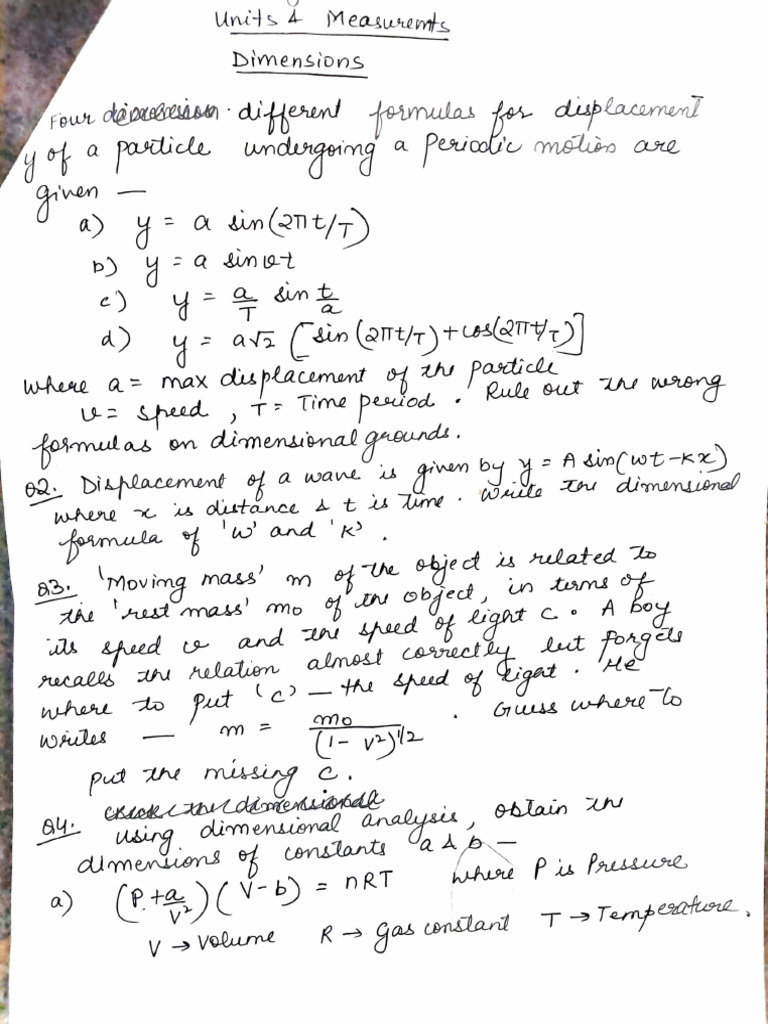 Units & Measuremts
Dimensions
Four different formulas for displacement
y of a particle undergoing a periodic motion are
given —
a) y = a sin(2πt/T)
b) y = a sin vt
c) y = a/T sin t/a
d) y = a√2 [sin (2πt/T) + cos(2πt/T)]
where a = max displacement of the particle
v = speed , T = Time period . Rule out the wrong
formulas on dimensional grounds.
Q2. Displacement of a wave is given by y = A sin(wt - kx)
where x is distance & t is time . Write the dimensional
formula of 'w' and 'k' .
Q3. 'Moving mass' m of the object is related to
the 'rest mass' mo of the object, in terms of
its speed v and the speed of light c. A boy
recalls the relation almost correctly but forgets
where to put 'c' — the speed of light . He
writes — m = mo/(1 - v²)^1/2 . Guess where to
put the missing c.
Q4. using dimensional analysis, obtain the
dimensions of constants a & b —
a) (P + a/V²)(V - b) = nRT where P is Pressure
V → Volume R → gas constant T → Temperature.